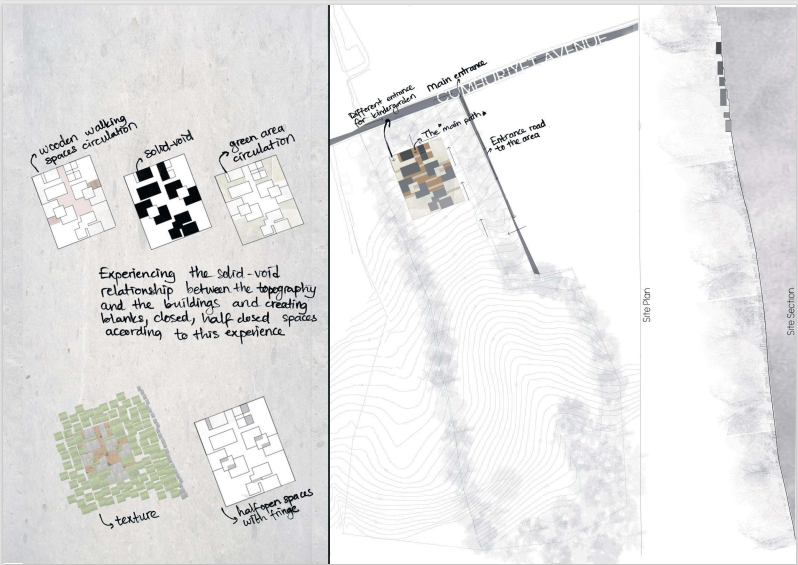 wooden walking
spaces circulation
solid-void
green area
circulation
Experiencing the solid-void
relationship between the topography
and the buildings and creating
blanks, closed, half closed spaces
according to this experience
texture
halfopen spaces
with fringe
CUMHURİYET AVENUE
Main entrance
Different entrance
for kindergarden
The "main path"
Entrance road
to the area
Site Plan
Site Section